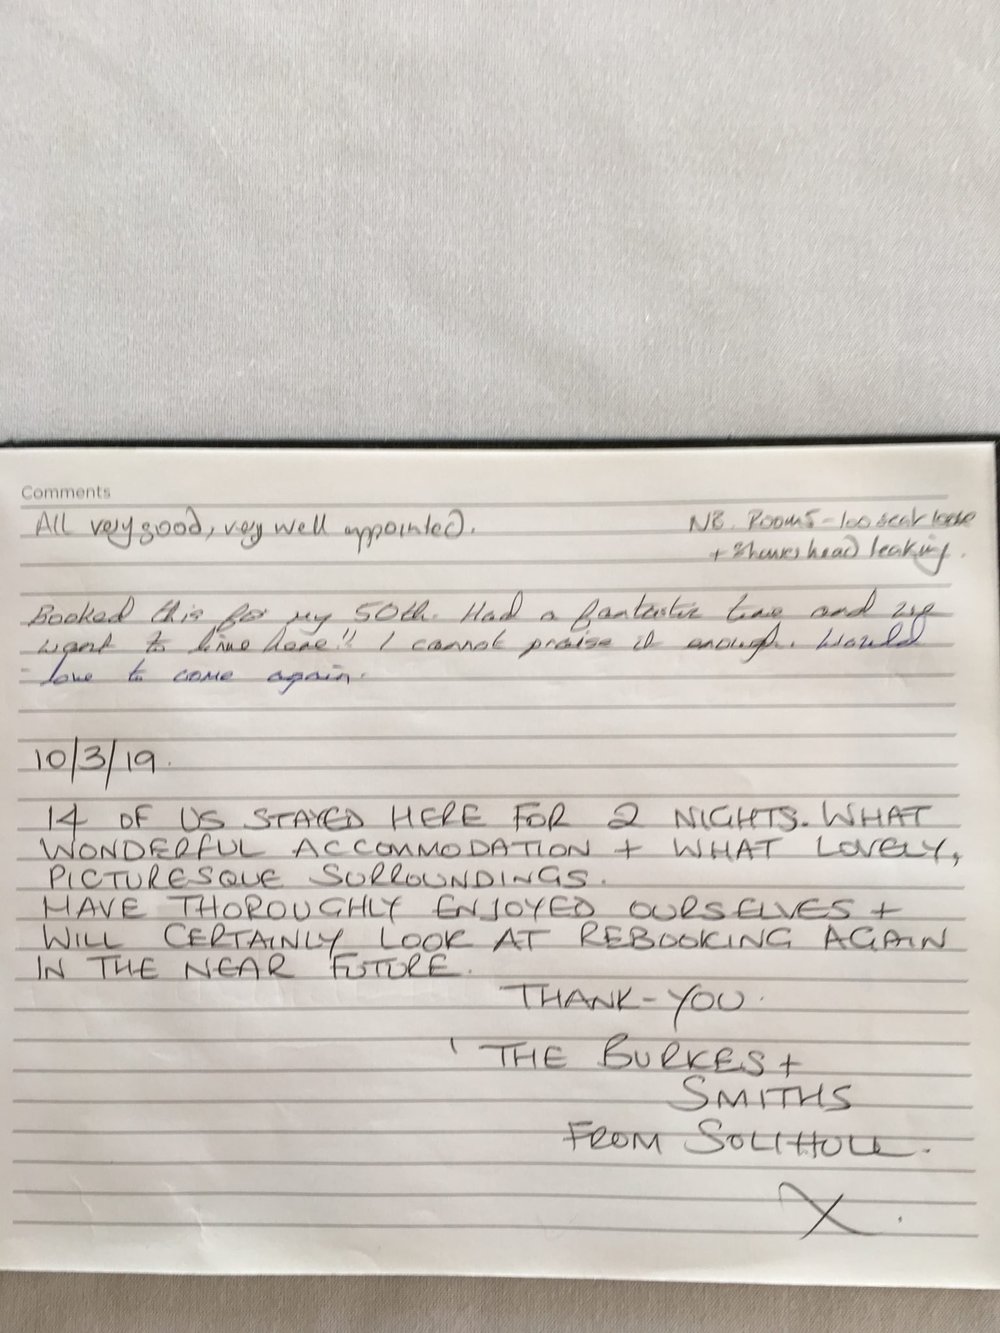 Comments
All very good, very well appointed.
NB. Room 5 - loo seat loose
+ shower head leaking.
Booked this for my 50th. Had a fantastic time and
want to live here!! I cannot praise it enough. Would
love to come again.
10/3/19.
14 OF US STAYED HERE FOR 2 NIGHTS. WHAT
WONDERFUL ACCOMMODATION + WHAT LOVELY,
PICTURESQUE SURROUNDINGS.
HAVE THOROUGHLY ENJOYED OURSELVES +
WILL CERTAINLY LOOK AT REBOOKING AGAIN
IN THE NEAR FUTURE.
THANK-YOU.
THE BURKES +
SMITHS
FROM SOLIHULL.
X.